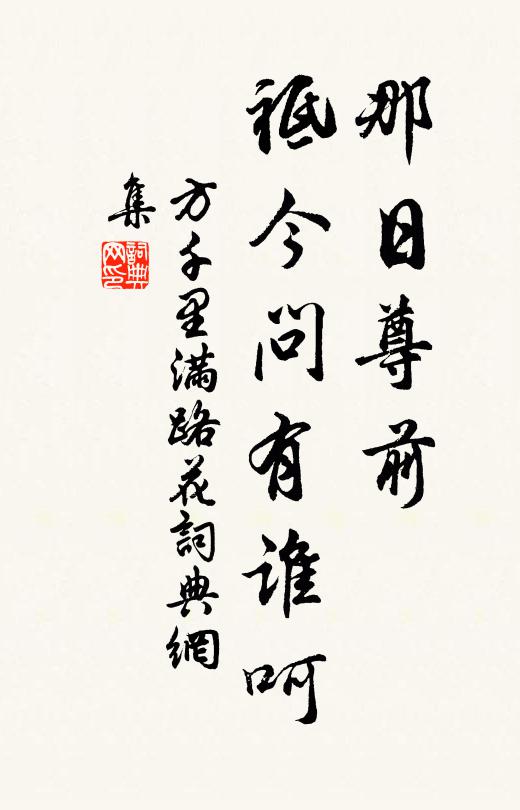 那日尊前
祗今問有誰呵
方千里滿路花詞典網
集
詞典
网印